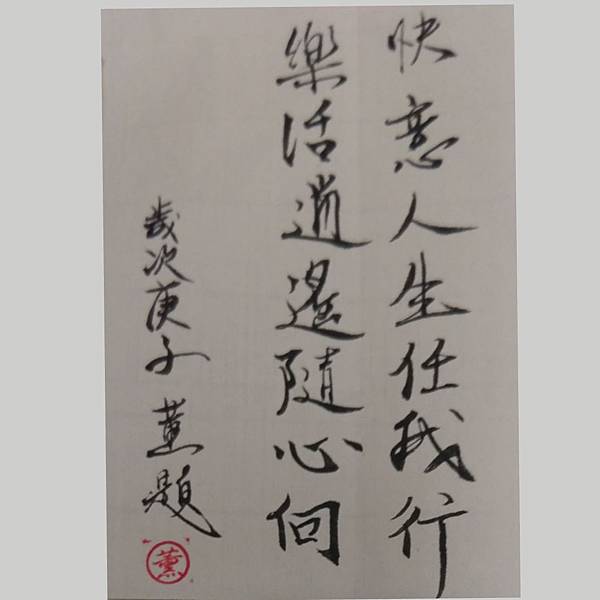 快意人生任我行
樂活逍遙隨心徊
歲次庚子 薰題
薰